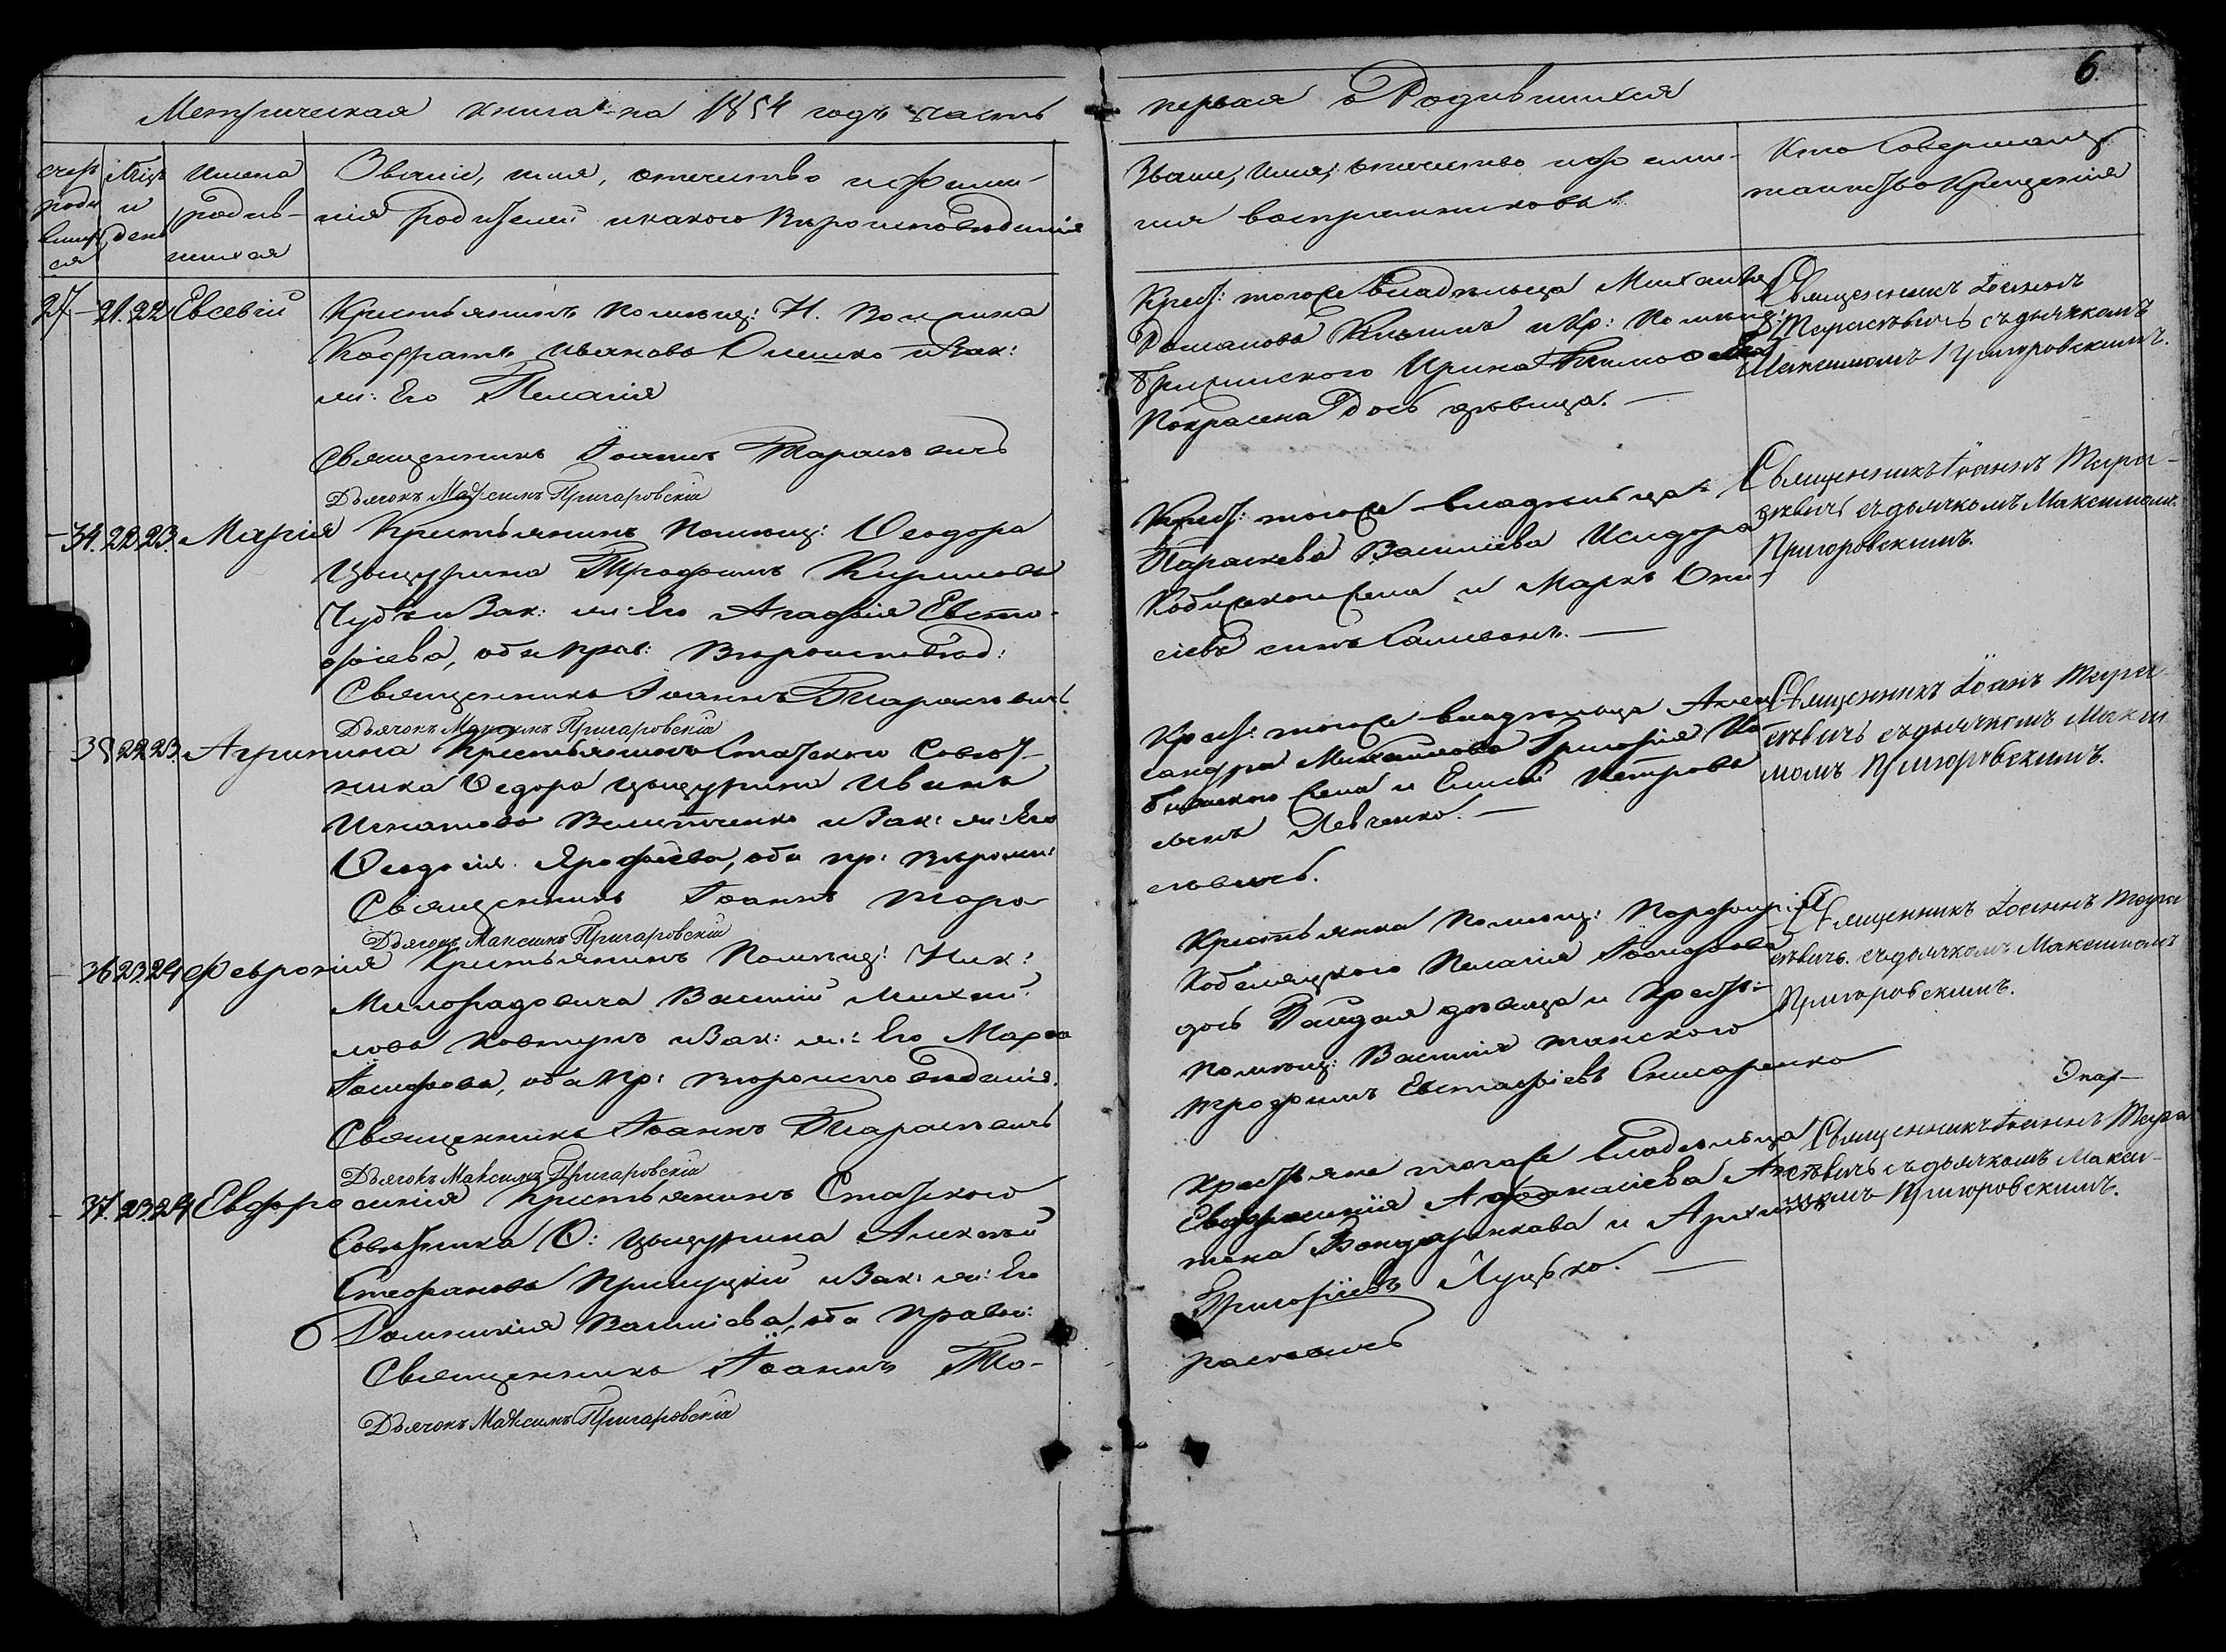 6.
Метрическая книга на 1854 годъ часть
первая о Родившихся
счетъ родившихся
Мѣцъ и день
Имена родившихся
Званіе, имя, отечество и фамилія родителей и какого Вѣроисповѣданія
Званіе, Имя, отечество и фамилия воспріемниковъ
Кто Совершалъ таинство Крещенія
27 21. 22 Евсевій Крестьянинъ помѣщ: Н.
Кодратъ Ивановъ Олешко и Зак:
ми: Его Пелагія
Священникъ Іоаннъ Тарасѣвичъ
Дьячокъ Максимъ Пригаровскій
Крест: тогоже владѣльца Михаилъ
Романовъ и Кр: помѣщ:
Ирина
дось дѣвица. —
Священникъ Іоаннъ
Тарасѣвичъ съ дьячкомъ
Максимомъ Пригоровскимъ.
34. 22 23. Марія Крестьянинъ помѣщ: Ѳеодора
Цыцурина Трофимъ Кириловъ
Чубъ и Зак: ми: Его Агафія Евста-
фіева, оба прав: Вѣроисповѣд:
Священникъ Іоаннъ Тарасѣвичъ
Дьячокъ Максимъ Пригаровскій
Крест: тогоже владѣльца
Параскева Василіева Исидора
жена и Маркъ
сіевъ сынъ —
Священникъ Іоаннъ Тара-
сѣвичъ съ дьячкомъ Максимомъ
Пригоровскимъ.
35 22 23 Агрипина Крестьянинъ Статского Совѣт-
ника Ѳедора Цыцурина Иванъ
Игнатовъ Велитченко и Зак: ми: Его
Ѳеодосія Ярофѣева, оба пр: вѣроисп:
Священникъ Іоаннъ Тара
Дьячокъ Максимъ Пригаровскій
Крест: тогоже владѣльца Алек-
сандра Михайлова Григорія
жена и Елисей Петровъ
сынъ Левченко. —
сѣвичъ.
Священникъ Іоанъ Тара
сѣвичъ съ дьячкомъ Макси
момъ Пригоровскимъ.
36 23. 24 Февронія Крестьянинъ Помѣщ: Ник:
Милорадовича Василій Михай-
ловъ Ковтунъ и Зак: ми: Его Марѳа
Іосифова, оба пр: вѣроисповѣданія.
Священникъ Іоаннъ Тарасѣвичъ
Дьячокъ Максимъ Пригаровскій
Крестьянка помѣщ: Порфирія
Кобеляцкого Пелагія Іосифова
дось Гайдая дѣвица и Крест:
помѣщ: Василія
трофимъ Евстафіевъ Слисаренко
Священникъ Іоаннъ Тара
сѣвичъ съ дьячкомъ Максимомъ
Пригоровскимъ.
37. 23. 24 Евфросинія Крестьянинъ Статского
Совѣтника Ѳ: Цыцурина Алексѣй
Стефановъ Прилуцкій и Зак: ми: Его
Домникія Василіева, оба правос:
Священникъ Іоаннъ Та-
Дьячокъ Максимъ Пригаровскій
Крестьяне тогоже владѣльца
Евфросинія Афанасіева
жена Бондаренкова и
Григоріевъ Луцько. —
расѣвичъ
Священникъ Іоаннъ Тара
сѣвичъ съ дьячкомъ Макси-
момъ Пригоровскимъ.